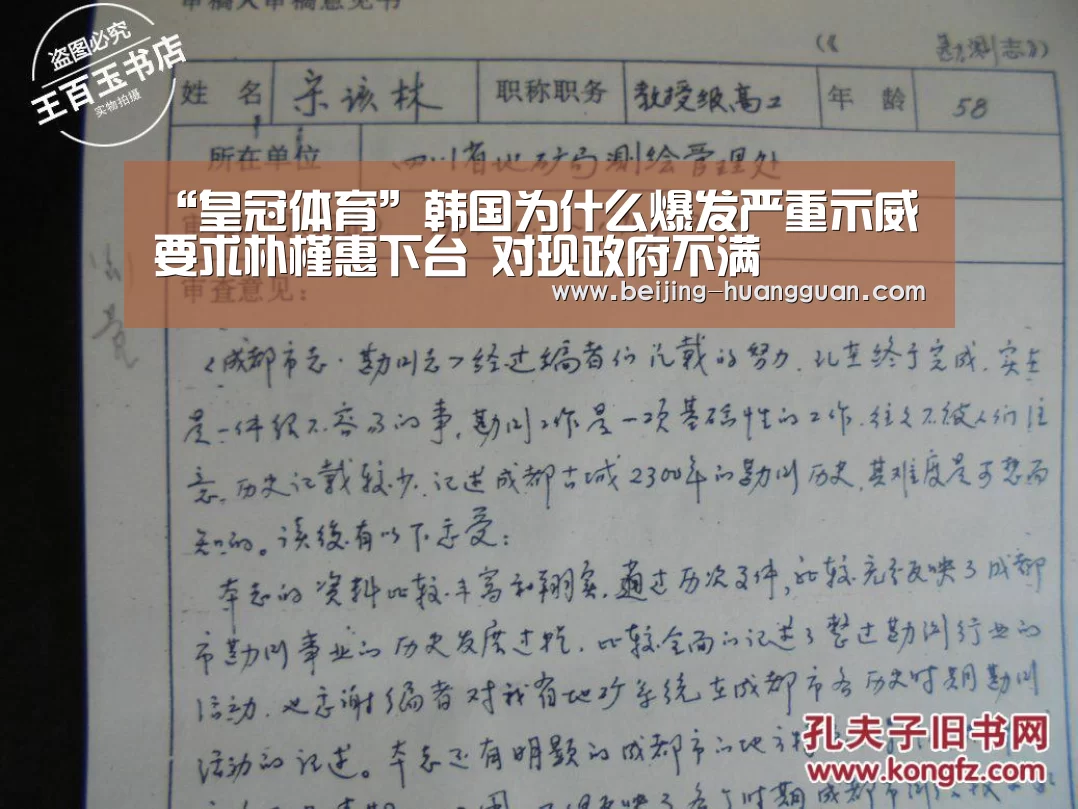 审稿人审稿意见书
(《 勘测志》)
盗图必究
王百玉书店
实物拍摄
姓 名 宋该林 职称职务 教授级高工 年 龄 58
所在单位 四川省地矿局测绘管理处
“皇冠体育”韩国为什么爆发严重示威
要求朴槿惠下台 对现政府不满
www.beijing-huangguan.com
审查意见：
《成都市志·勘测志》经过编者们几载的努力, 现在终于完成, 实在
是一件很不容易的事, 勘测工作是一项基础性的工作, 往往不被人们注
意, 历史记载较少, 记述成都古城2300年的勘测历史, 其难度是可想而
知的。读后有以下感受：
本志的资料比较丰富和翔实, 通过历次文件, 比较充分反映了成都
市勘测事业的历史发展过程, 比较全面的记述了整过勘测行业的
活动, 也感谢编者对我省地矿系统在成都市各历史时期勘测
活动的记述。本志还有明显的成都市的地方
孔夫子旧书网
www.kongfz.com